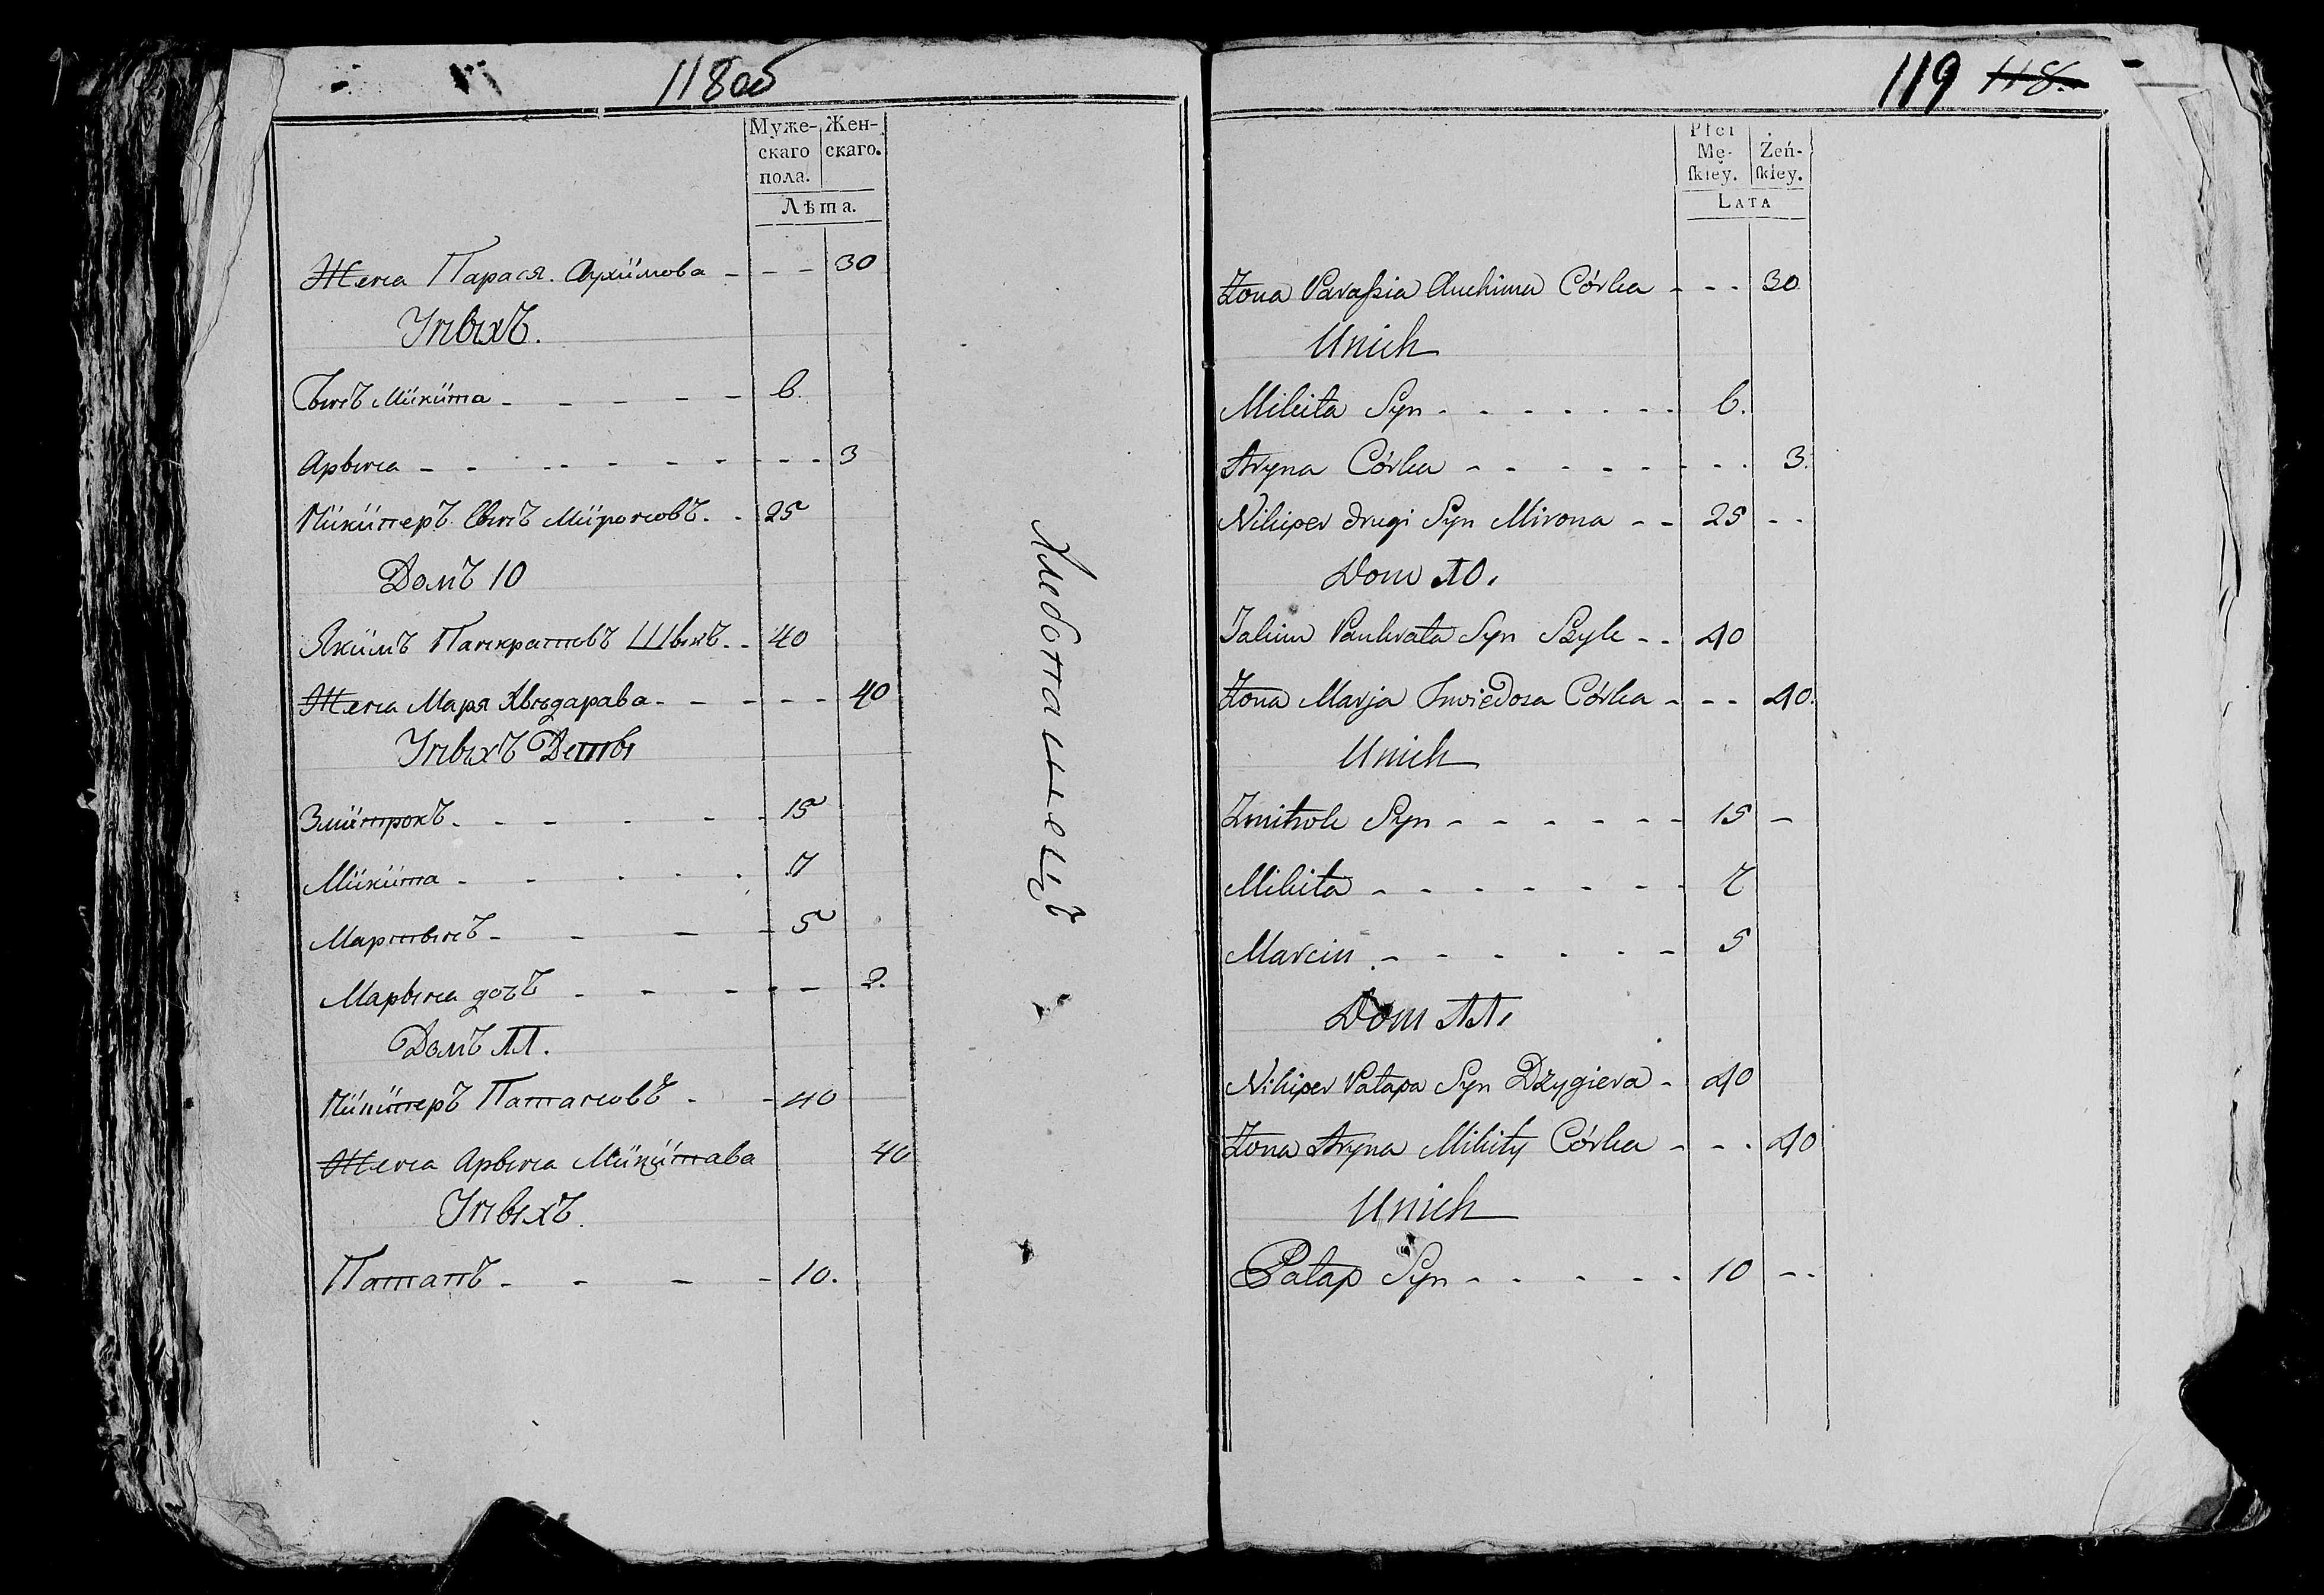 118об
Муже- Жен-
скаго скаго.
пола.
Лѣта.
Жена Парася Аухимова - - - 30
Уныхъ.
Сынъ Микита - - - - - 6.
Арына - - - - - - - - 3
Никиперъ Сынъ Мироновъ. - 25
Домъ 10
Якимъ Панкратовъ Шыкъ. - - 40
Жена Маря Хвѣдарава - - - - - 40
Уныхъ Деты
Змитрокъ - - - - - 15
Микита - - - - - 7
Мартынъ - - - - 5
Марына дочъ - - - - - 2.
Домъ 11.
Никиперъ - - 40
Жена Арына Микитава 40
Уныхъ.
Патапъ - - - - 10.
119 118.
Płci
Mę- Żeń-
ſkiey. ſkiey.
LATA
Żona Paraſsia Auchima Córka - - - 30
Unich
Mikita Syn - - - - - - - 6.
Aryna Córka - - - - - - - - 3.
Nikiper drugi Syn Mirona - - 25 - -
Dom 10.
Jakim Pankrata Syn Szyk - - 40
Żona Marja Chwiedora Córka - - - 40.
Unich
Zmitrok Syn - - - - - - 15 -
Mikita - - - - - - - 7
Marcin - - - - - - 5
Dom 11.
Nikiper Patapa Syn Dzygiera - 40
Żona Aryna Mikity Córka - - - 40
Unich
Patap Syn - - - - - 10 - -